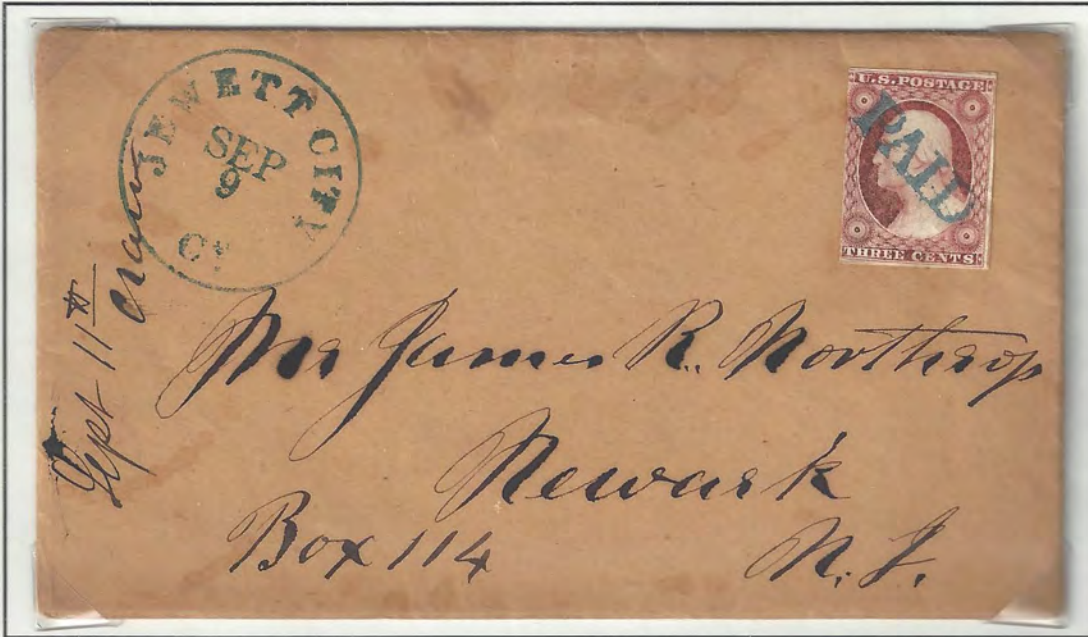 JEWETT CITY
SEP
9
Ct
U.S. POSTAGE
PAID
THREE CENTS
Sept 11th
Mr James R. Northrop
Newark
Box 114
N. J.